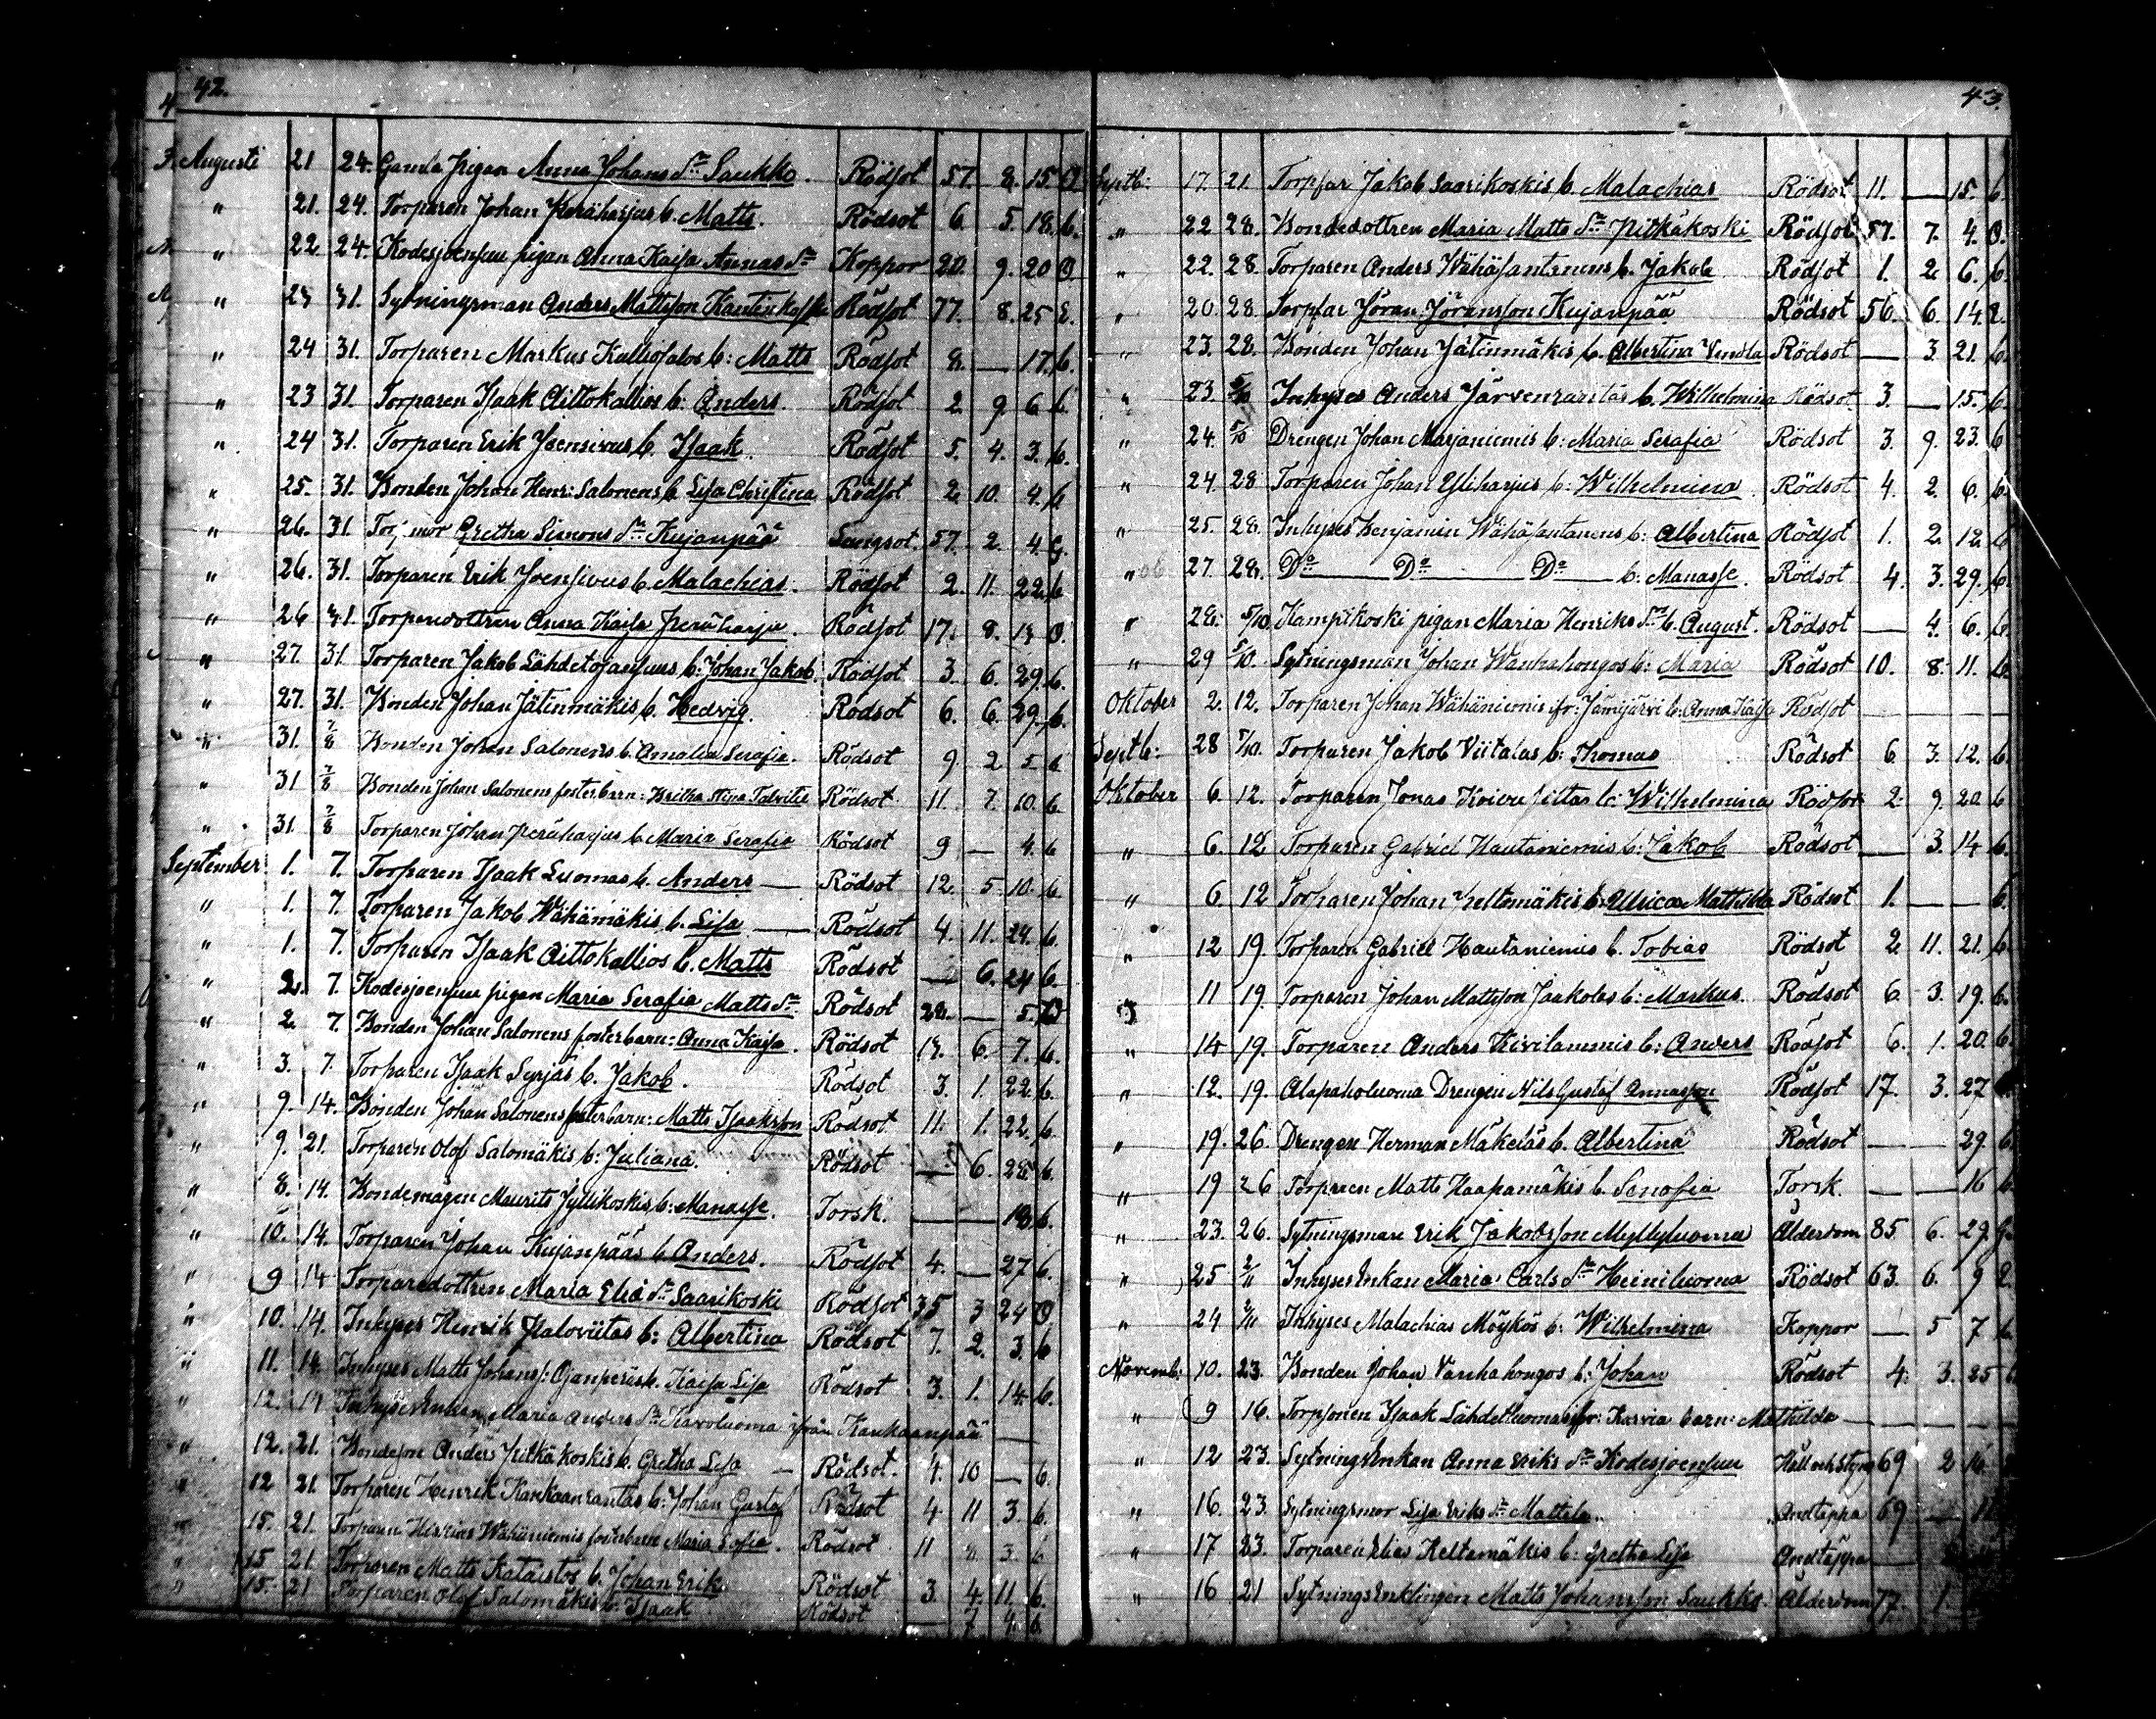 42.
Augusti 21 24. Gamla pigan Anna Johans Dr Saukko. Rödsot 57. 8. 15. O
" 21. 24. Torparen Johan Peräharjus b. Matts. Rödsot 6. 5. 18. b.
" 22. 24. Kodesjoensuu pigan Anna Kaisa Annas Dr Koppor 20. 9. 20 O
" 23 31. Sytningsman Anders Mattsson Kantinkoski Rödsot 77. 8. 25 E.
" 24 31. Torparen Markus Kalliosalos b: Matts Rödsot 8. — 17. b.
" 23 31. Torparen Isaak Aittokallios b. Anders. Rödsot 2. 9. 6 b.
" 24 31. Torparen Erik Joensivus b. Isaak. Rödsot 5. 4. 3. b.
" 25. 31. Bonden Johan Henr: Salonens b. Lisa Christina Rödsot 2. 10. 4. b
" 26. 31. Tor mor Gretha Simons Dr Kujanpää Lungsot. 57. 2. 4. G.
" 26. 31. Torparen Erik Joensivus b. Malachias. Rödsot 2. 11. 22. b
" 26 31. Torparedottren Anna Kaisa Peräharju. Rödsot 17. 8. 13 O.
" 27. 31. Torparen Jakob Lähdetojansuus b: Johan Jakob. Rödsot 3. 6. 29. b.
" 27. 31. Bonden Johan Jätinmäkis b. Hedvig. Rödsot 6. 6. 29. b.
" 31. 7/8 Bonden Johan Salonens b. Amalia Serafia. Rödsot 9. 2 5 b
" 31 7/8 Bonden Johan Salonens fosterbarn: Britha Stina Talvitie Rödsot 11 7. 10. b
" 31. 7/8 Torparen Johan Peräharjus b. Maria Serafia Rödsot 9 — 4. b
September 1. 7. Torparen Isaak Luomas b. Anders — Rödsot 12. 5. 10. b.
" 1. 7. Torparen Jakob Wähämäkis b. Lisa — Rödsot 4. 11. 24. b.
" 1. 7. Torparen Isaak Aittokallios b. Matts Rödsot — 6. 24 b.
" 2. 7. Kodesjoensuu pigan Maria Serafia Matts Dr Rödsot 22. — 5. O
" 2. 7. Bonden Johan Salonens fosterbarn: Anna Kaisa. Rödsot 13. 6. 7. b.
" 3. 7. Torparen Isaak Syrjäs b. Jakob. Rödsot 3. 1. 22. b.
" 9. 14. Bonden Johan Salonens fosterbarn: Matts Isaaksson Rödsot. 11. 1. 22. b.
" 9. 21. Torparen Olof Salomäkis b: Juliana. Rödsot — 6. 28. b.
" 8. 14. Bondemågen Maurits Jyllikoskis b: Manasse. Torsk. — — 18. b.
" 10. 14. Torparen Johan Kujanpääs b. Anders. Rödsot 4. — 27 b.
" 9 14 Torparedottren Maria Elia Dr Saarikoski Rödsot 35 3 24 O.
" 10. 14. Inhyses Henrik Haloviitas b: Albertina Rödsot 7. 2. 3. b
" 11. 14. Inhyses Matts Johanss: Ojanperäs b. Kaisa Lisa Rödsot 3. 1. 14. b.
" 12. 14 Inhyses Enkan Maria Anders Dr Karvoluoma ifrån Kankaanpää —
" 12. 21. Bondeson Anders Pitkäkoskis b. Gretha Lisa — Rödsot. 4. 10 — b.
" 12 21. Torparen Henrik Kankaanrantas b: Johan Gustaf Rödsot 4 11 3. b.
" 15. 21. Torparen Hiskias Wähäniemis fosterbarn Maria Sofia. Rödsot 11 8. 3. b
" 15 21. Torparen Matts Kataistos b. Johan Erik Rödsot 3. 4. 11. b.
" 15. 21 Torparen Olof Salomäkis b: Isaak Rödsot — 7 4. b.
43.
Septb: 17. 21. Torpfar Jakob Saarikoskis b. Malachias Rödsot 11. — 15. b.
" 22 28. Bondedottren Maria Matts Dr Pitkäkoski Rödsot 57. 7. 4. O.
" 22. 28. Torparen Anders Wähäsantanens b. Jakob Rödsot 1. 2. 6. b.
" 20. 28 Torpfar Jöran Jöransson Kujanpää Rödsot 56. 6. 14. E.
" 23. 28. Bonden Johan Jätinmäkis b. Albertina Vendla Rödsot — 3. 21. b.
" 23. 5/10 Inhyses Anders Järvenrantas b. Wilhelmina Rödsot. 3. — 15. b.
" 24. 5/10 Drengen Johan Marjaniemis b: Maria Serafia Rödsot 3. 9. 23. b
" 24. 28. Torparen Johan Yliharjus b: Wilhelmina. Rödsot 4. 2. 6. b
" 25. 28. Inhyses Benjamin Wähäsantanens b: Albertina Rödsot 1. 2. 12. b
" 27. 28. Do — Do — Do — b: Manasse. Rödsot 4. 3. 29. b.
" 28. 5/10. Kampikoski pigan Maria Henriks Dr b. August. Rödsot — 4. 6. b.
" 29 5/10. Sytningsman Johan Wanhahongos b: Maria Rödsot 10. 8. 11. b.
Oktober 2. 12. Torparen Johan Wähäniemis ifr: Jämijärvi b: Anna Kaisa Rödsot — — —
Septb: 28 5/10. Torparen Jakob Viitalas b: Thomas Rödsot 6. 3. 12. b.
Oktober 6. 12. Torparen Jonas b: Wilhelmina Rödsot 2. 9. 20. b
" 6. 12 Torparen Gabriel Hautaniemis b: Jakob Rödsot — 3. 14 b.
" 6. 12 Torparen Johan Keltomäkis b: Ullrica Mathilda Rödsot 1. — — b.
" 12 19. Torparen Gabriel Hautaniemis b. Tobias Rödsot 2. 11. 21. b
" 11 19. Torparen Johan Mattsson Jaakolas b: Markus. Rödsot 6. 3. 19. b.
" 14 19. Torparen Anders Kivilammis b: Anders Rödsot 6. 1. 20. b
" 12. 19. Alapaholuoma Drengen Nils Gustaf Annasson Rödsot 17. 3. 27
" 19. 26. Drengen Herman Mäkeläs b. Albertina Rödsot — — 29. b
" 19 26 Torparen Matts Haapamäkis b. Senofia Torsk. — — 16 b
" 23. 26. Sytningsman Erik Jakobsson Myllyluoma Ålderdom 85. 6. 29. G.
" 25 2/11 Inhyses Enkan Maria Carls Dr Heiniluoma Rödsot 63. 6. 9 E.
" 24 2/11 Inhyses Malachias Möykös b: Wilhelmina Koppor — 5 7 b
Novemb: 10. 23. Bonden Johan Vanhahongos b: Johan Rödsot 4. 3. 25 b
" 9 16. Torpsonen Isaak Lähdeluomas ifr: Karvia barn: Mathilda — — —
" 12 23. Sytnings Enkan Anna Eriks Dr Kodesjoensuu Håll och Styng 69 2 16
" 16. 23 Sytningsmor Lisa Eriks Dr Mattila. Andtäppa 69 — 11
" 17 23. Torparen Elias Keltomäkis b: Gretha Lisa Andtäppa —
" 16 21 Sytnings Enklingen Matts Johansson Saukko. Ålderdom 77. 1.